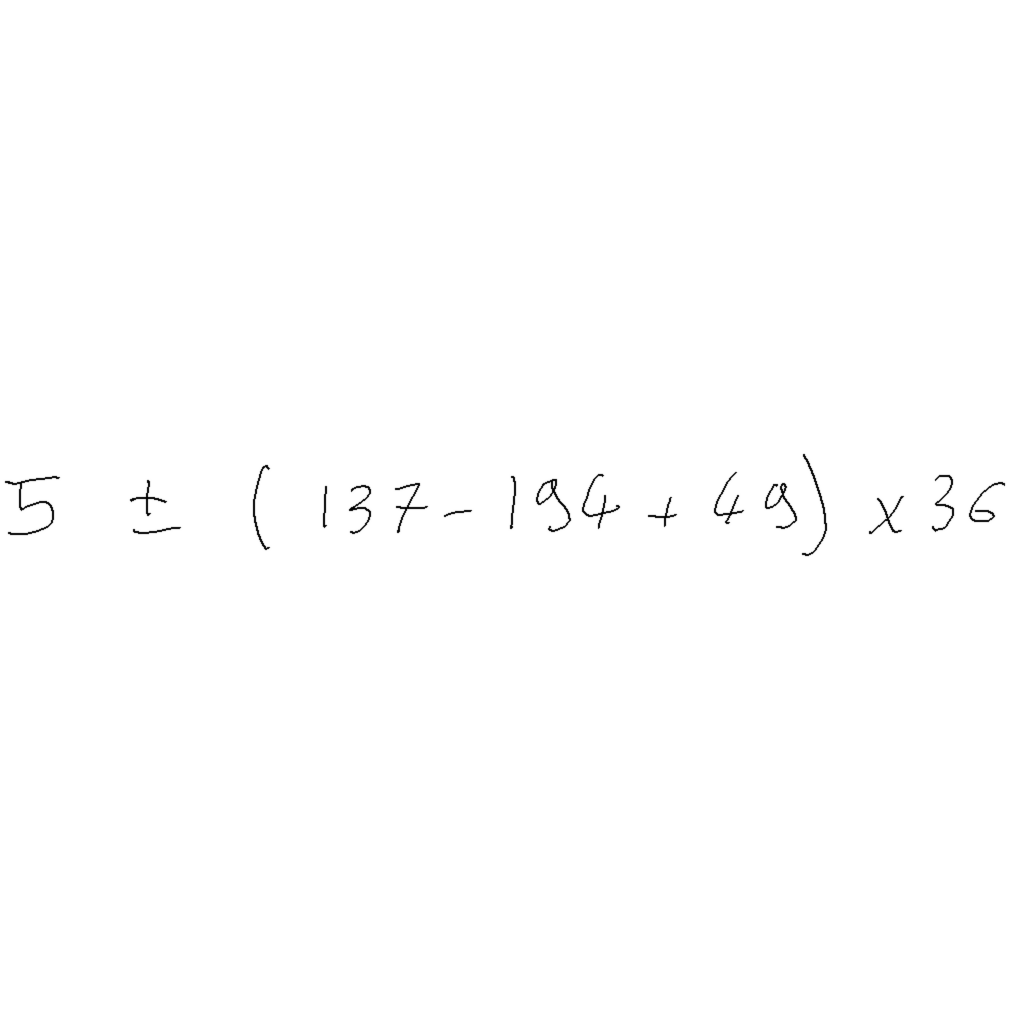 5 ± (137-194+49) x36